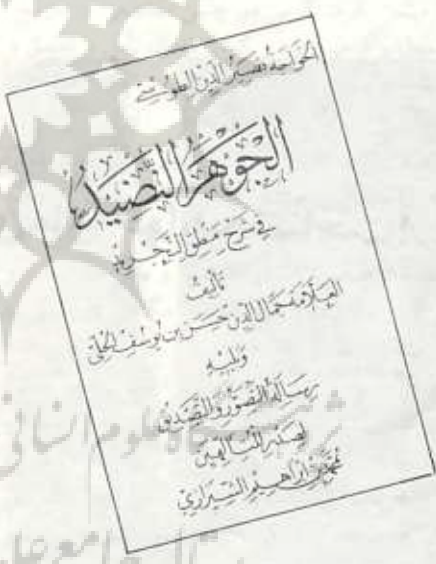 الخواجة نصير الدين الطوسي
الجوهر النضيد
في شرح منطق التجريد
تأليف
العلامة جمال الدين حسن بن يوسف الحلي
وليه
رسالة التصور والتصديق
لصدر المتألهين
محمد بن ابراهيم الشيرازي
علوم انسانی
جامع علو